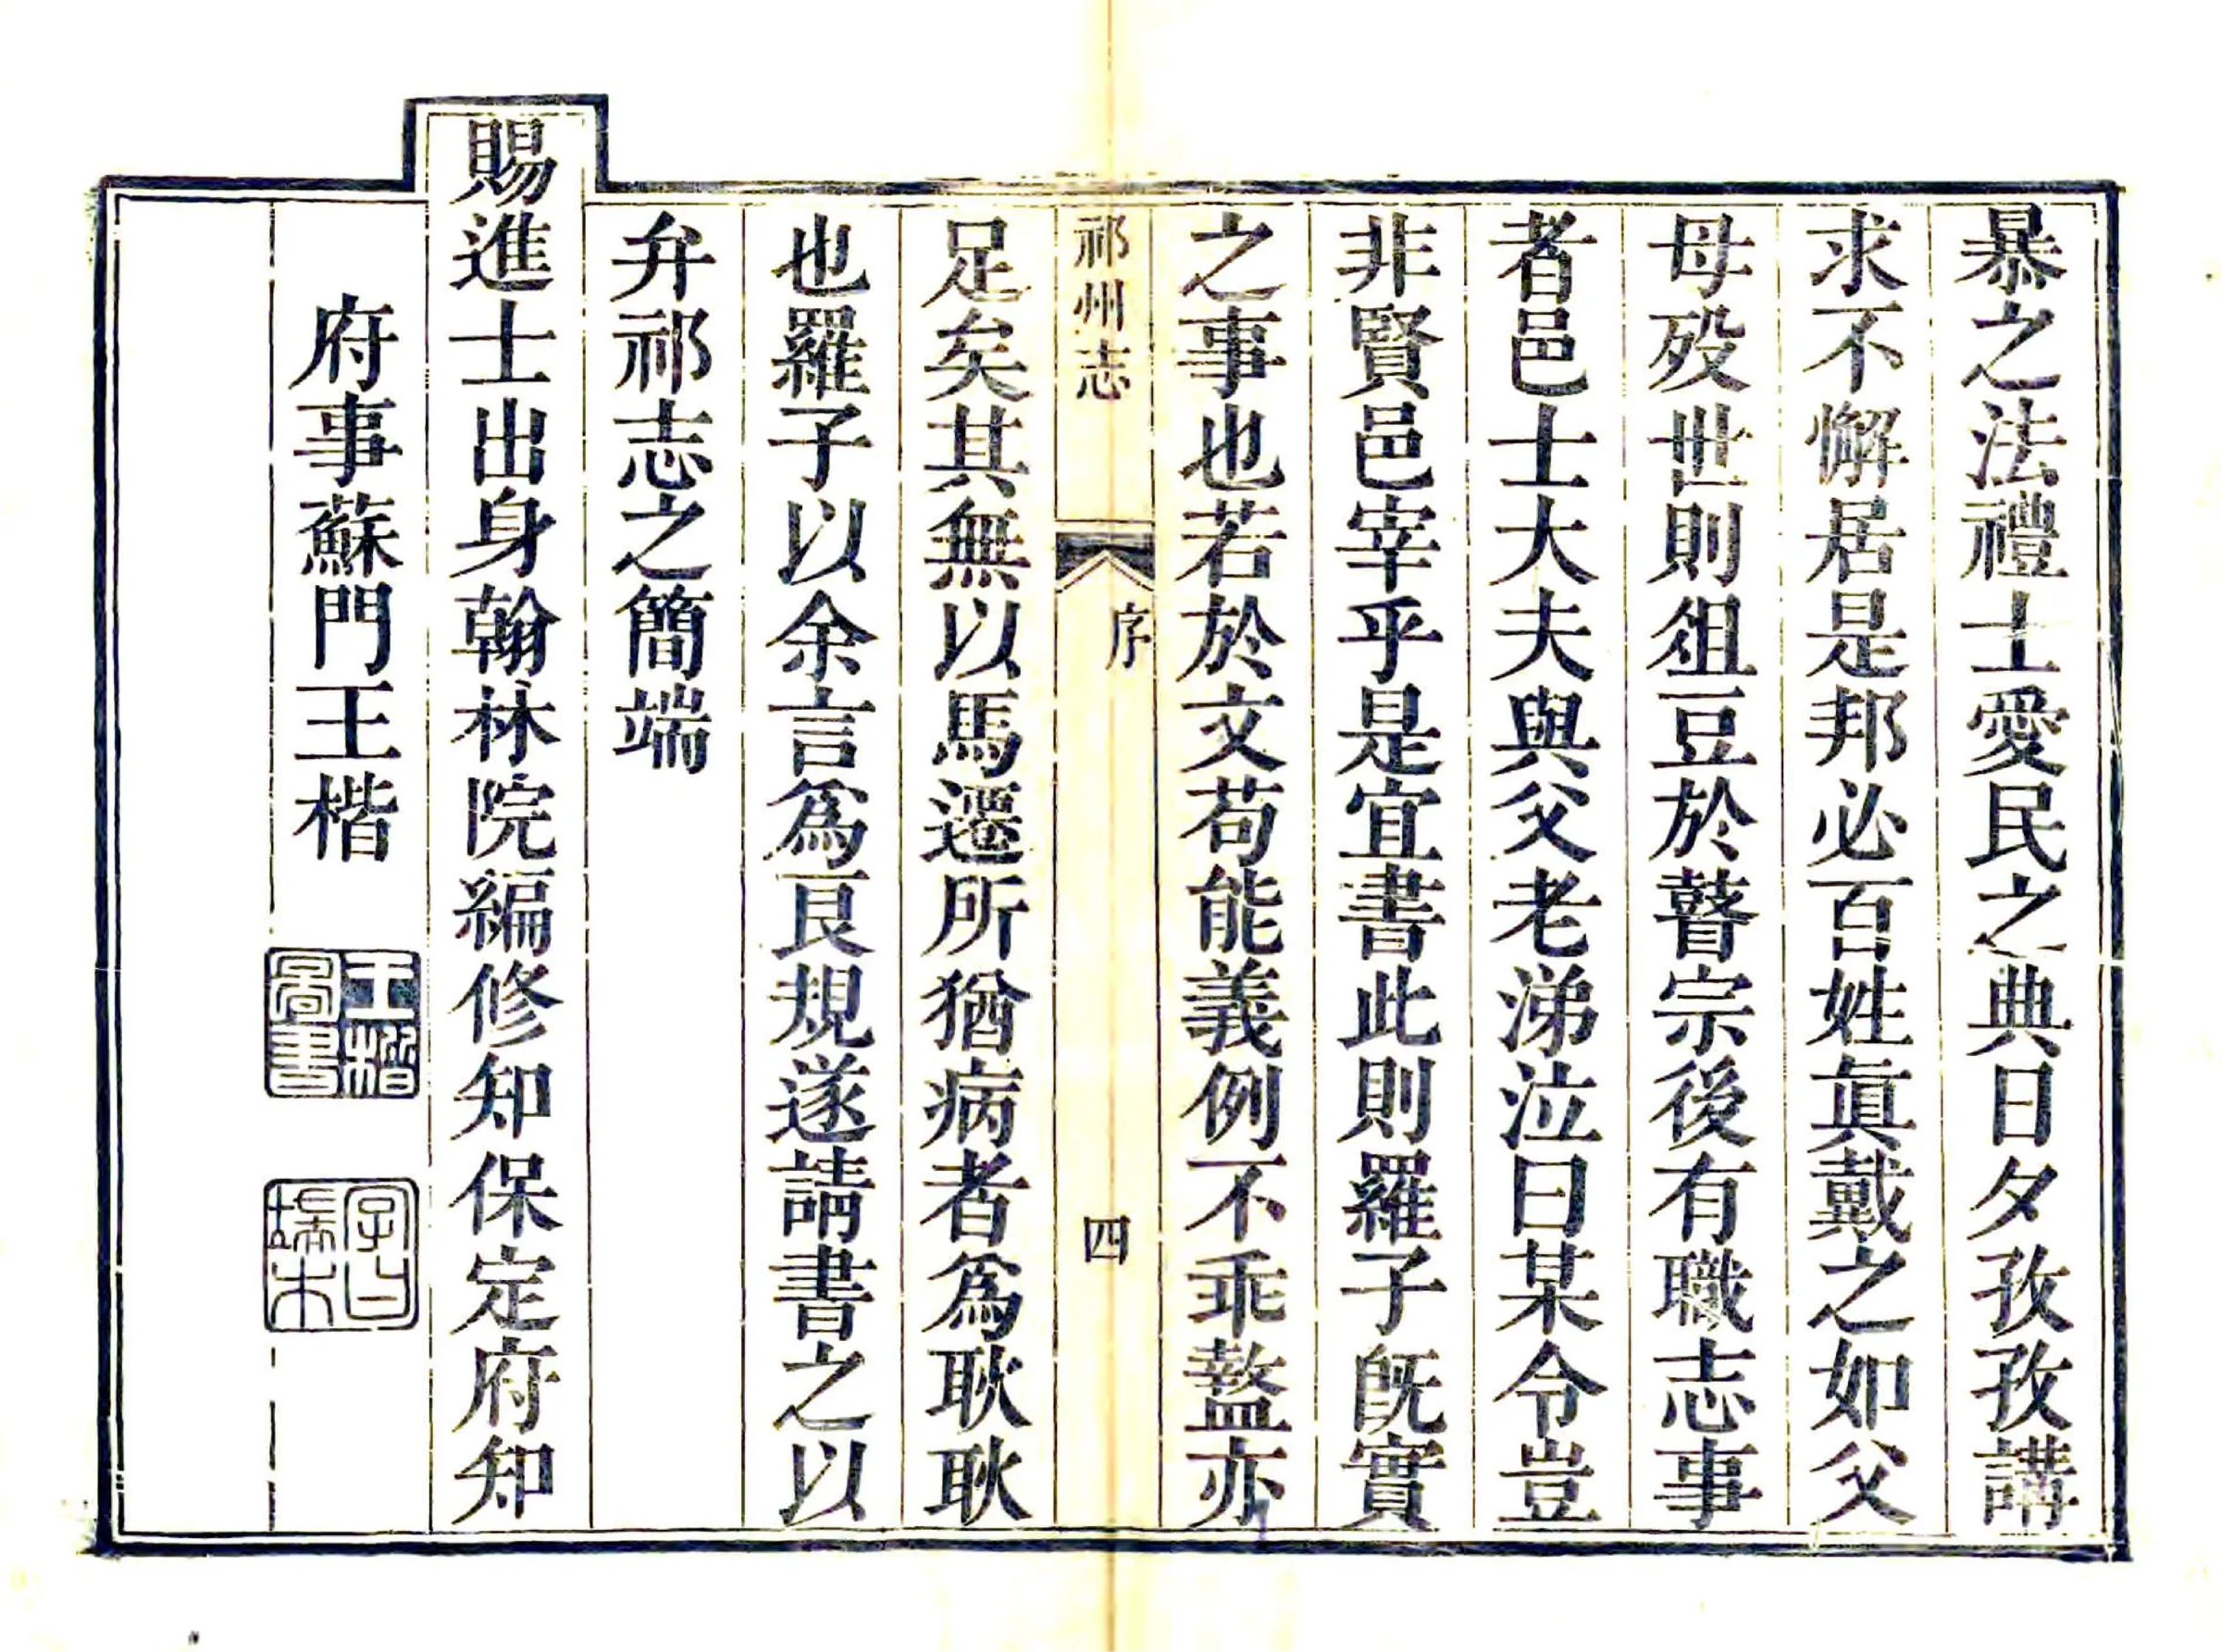 暴之法禮士愛民之典日夕孜孜講
求不懈居是邦必百姓眞戴之如父
母歿世則俎豆於瞽宗後有職志事
者邑士大夫與父老涕泣曰某令豈
非賢邑宰乎是宜書此則羅子旣實
之事也若於文苟能義例不乖盭亦
祁州志
序
四
足矣其無以馬遷所猶病者爲耿耿
也羅子以余言爲良規遂請書之以
弁祁志之簡端
賜進士出身翰林院編修知保定府知
府事蘇門王楷
王楷
圖書
字曰
端木